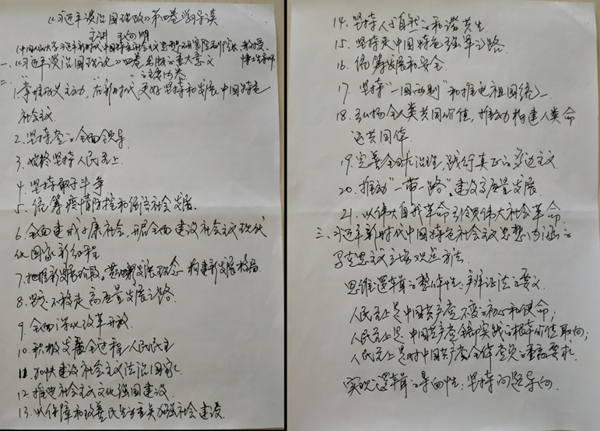 《习近平谈治国理政》第四卷导读
一、《习近平谈治国理政》四卷出版的重大意义
二、主要内容
1. 掌握历史主动，在新时代更好坚持和发展中国特色
社会主义
2. 坚持党的全面领导
3. 始终坚持人民至上
4. 坚持敢于斗争
5. 统筹疫情防控和经济社会发展
6. 全面建成小康社会，开启全面建设社会主义现代
化国家新征程
7. 把握新发展阶段，贯彻新发展理念 构建新发展格局
8. 坚定不移走高质量发展之路
9. 全面深化改革开放
10. 积极发展全过程人民民主
11. 加快建设社会主义法治国家
12. 推进社会主义文化强国建设
13. 以保障和改善民生为重点加强社会建设
14. 坚持人与自然的和谐共生
15. 坚持走中国特色强军之路
16. 统筹发展和安全
17. 坚持“一国两制”和推进祖国统一
18. 弘扬全人类共同价值，推动构建人类命
运共同体
19. 完善全球治理，践行真正的多边主义
20. 推动“一带一路”建设高质量发展
21. 以伟大自我革命引领伟大社会革命
三、习近平新时代中国特色社会主义思想内涵的
马克思主义立场观点方法
思维逻辑的整体性，辩证法的要义
人民至上是中国共产党不变的初心和使命；
人民至上是中国共产党全部实践的根本价值取向；
人民至上是对中国共产党全体党员的重要要求。
实现逻辑的导向性，坚持问题导向。